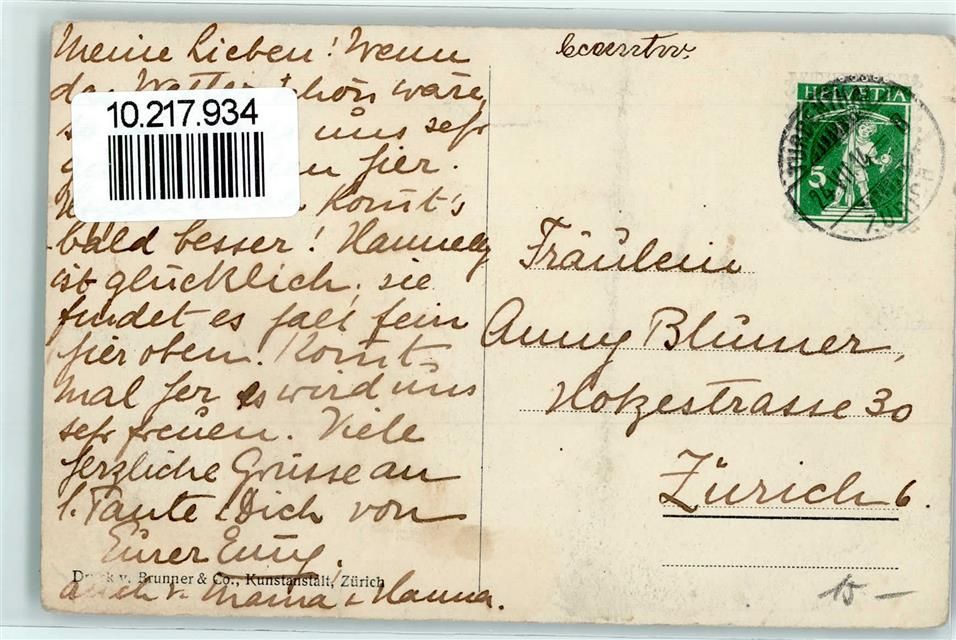 Meine Lieben! Wenn
das Wetter schön wäre
uns sehr
hier.
Komt's
bald besser! Hannely
ist glücklich, sie
findet es halt fein
hier oben. Komt
mal her es wird uns
sehr freuen. Viele
herzliche Grüsse an
l. Tante & Dich von
Eurer Emy.
auch v. Mama & Hanna.
10.217.934
Druck v. Brunner & Co., Kunstanstalt, Zürich
HELVETIA
5
24.VII.14
Fräulein
Anny Blumer,
Hotzestrasse 30
Zürich 6
15 –